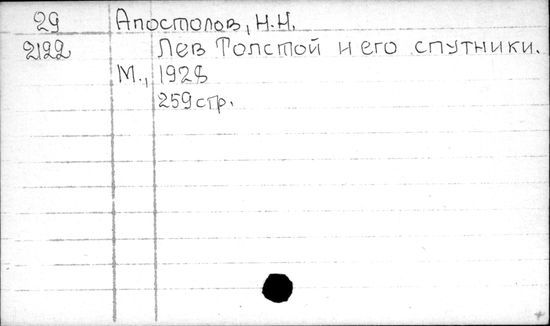 29 Апостолов, Н.Н.
2122 Лев Толстой и его спутники.
М., 1928
259 стр.